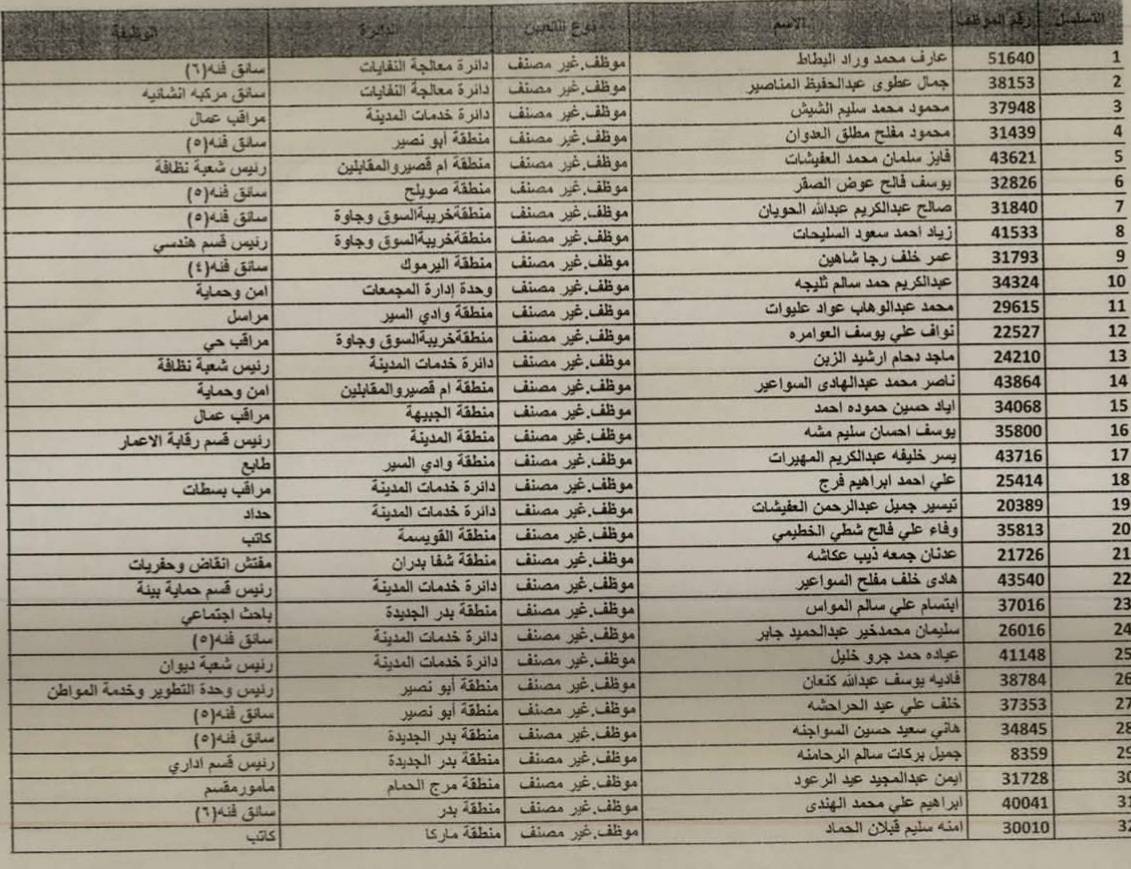 التسلسل رقم الموظف الاسم نوع التعيين الدائرة الوظيفة
1 51640 عارف محمد وراد البطاط موظف.غير مصنف دائرة معالجة النفايات سائق فئه(٦)
2 38153 جمال عطوى عبدالحفيظ المناصير موظف.غير مصنف دائرة معالجة النفايات سائق مركبه انشائيه
3 37948 محمود محمد سليم الشيش موظف.غير مصنف دائرة خدمات المدينة مراقب عمال
4 31439 محمود مفلح مطلق العدوان موظف.غير مصنف منطقة أبو نصير سائق فئه(٥)
5 43621 فايز سلمان محمد العفيشات موظف.غير مصنف منطقة ام قصيروالمقابلين رئيس شعبة نظافة
6 32826 يوسف فالح عوض الصقر موظف.غير مصنف منطقة صويلح سائق فئه(٥)
7 31840 صالح عبدالكريم عبدالله الحويان موظف.غير مصنف منطقةخريبةالسوق وجاوة سائق فئه(٥)
8 41533 زياد احمد سعود السليحات موظف.غير مصنف منطقةخريبةالسوق وجاوة رئيس قسم هندسي
9 31793 عمر خلف رجا شاهين موظف.غير مصنف منطقة اليرموك سائق فئه(٤)
10 34324 عبدالكريم حمد سالم ثليجه موظف.غير مصنف وحدة إدارة المجمعات امن وحماية
11 29615 محمد عبدالوهاب عواد عليوات موظف.غير مصنف منطقة وادي السير مراسل
12 22527 نواف علي يوسف العوامره موظف.غير مصنف منطقةخريبةالسوق وجاوة مراقب حي
13 24210 ماجد دحام ارشيد الزبن موظف.غير مصنف دائرة خدمات المدينة رئيس شعبة نظافة
14 43864 ناصر محمد عبدالهادى السواعير موظف.غير مصنف منطقة ام قصيروالمقابلين امن وحماية
15 34068 اياد حسين حموده احمد موظف.غير مصنف منطقة الجبيهة مراقب عمال
16 35800 يوسف احسان سليم مشه موظف.غير مصنف منطقة المدينة رئيس قسم رقابة الاعمار
17 43716 يسر خليفه عبدالكريم المهيرات موظف.غير مصنف منطقة وادي السير طابع
18 25414 علي احمد ابراهيم فرج موظف.غير مصنف دائرة خدمات المدينة مراقب بسطات
19 20389 تيسير جميل عبدالرحمن العفيشات موظف.غير مصنف دائرة خدمات المدينة حداد
20 35813 وفاء علي فالح شطي الخطيمي موظف.غير مصنف منطقة القويسمة كاتب
21 21726 عدنان جمعه ذيب عكاشه موظف.غير مصنف منطقة شفا بدران مفتش انقاض وحفريات
22 43540 هادى خلف مفلح السواعير موظف.غير مصنف دائرة خدمات المدينة رئيس قسم حماية بيئة
23 37016 ابتسام علي سالم المواس موظف.غير مصنف منطقة بدر الجديدة باحث اجتماعي
24 26016 سليمان محمدخير عبدالحميد جابر موظف.غير مصنف دائرة خدمات المدينة سائق فئه(٥)
25 41148 عياده حمد جرو خليل موظف.غير مصنف دائرة خدمات المدينة رئيس شعبة ديوان
26 38784 فاديه يوسف عبدالله كنعان موظف.غير مصنف منطقة أبو نصير رئيس وحدة التطوير وخدمة المواطن
27 37353 خلف علي عيد الحراحشه موظف.غير مصنف منطقة أبو نصير سائق فئه(٥)
28 34845 هاني سعيد حسين السواجنه موظف.غير مصنف منطقة بدر الجديدة سائق فئه(٥)
29 8359 جميل بركات سالم الرحامنه موظف.غير مصنف منطقة بدر الجديدة رئيس قسم اداري
30 31728 ايمن عبدالمجيد عبد الرعود موظف.غير مصنف منطقة مرج الحمام مأمورمقسم
31 40041 ابراهيم علي محمد الهندى موظف.غير مصنف منطقة بدر سائق فئه(٦)
32 30010 امنه سليم قبلان الحماد موظف.غير مصنف منطقة ماركا كاتب